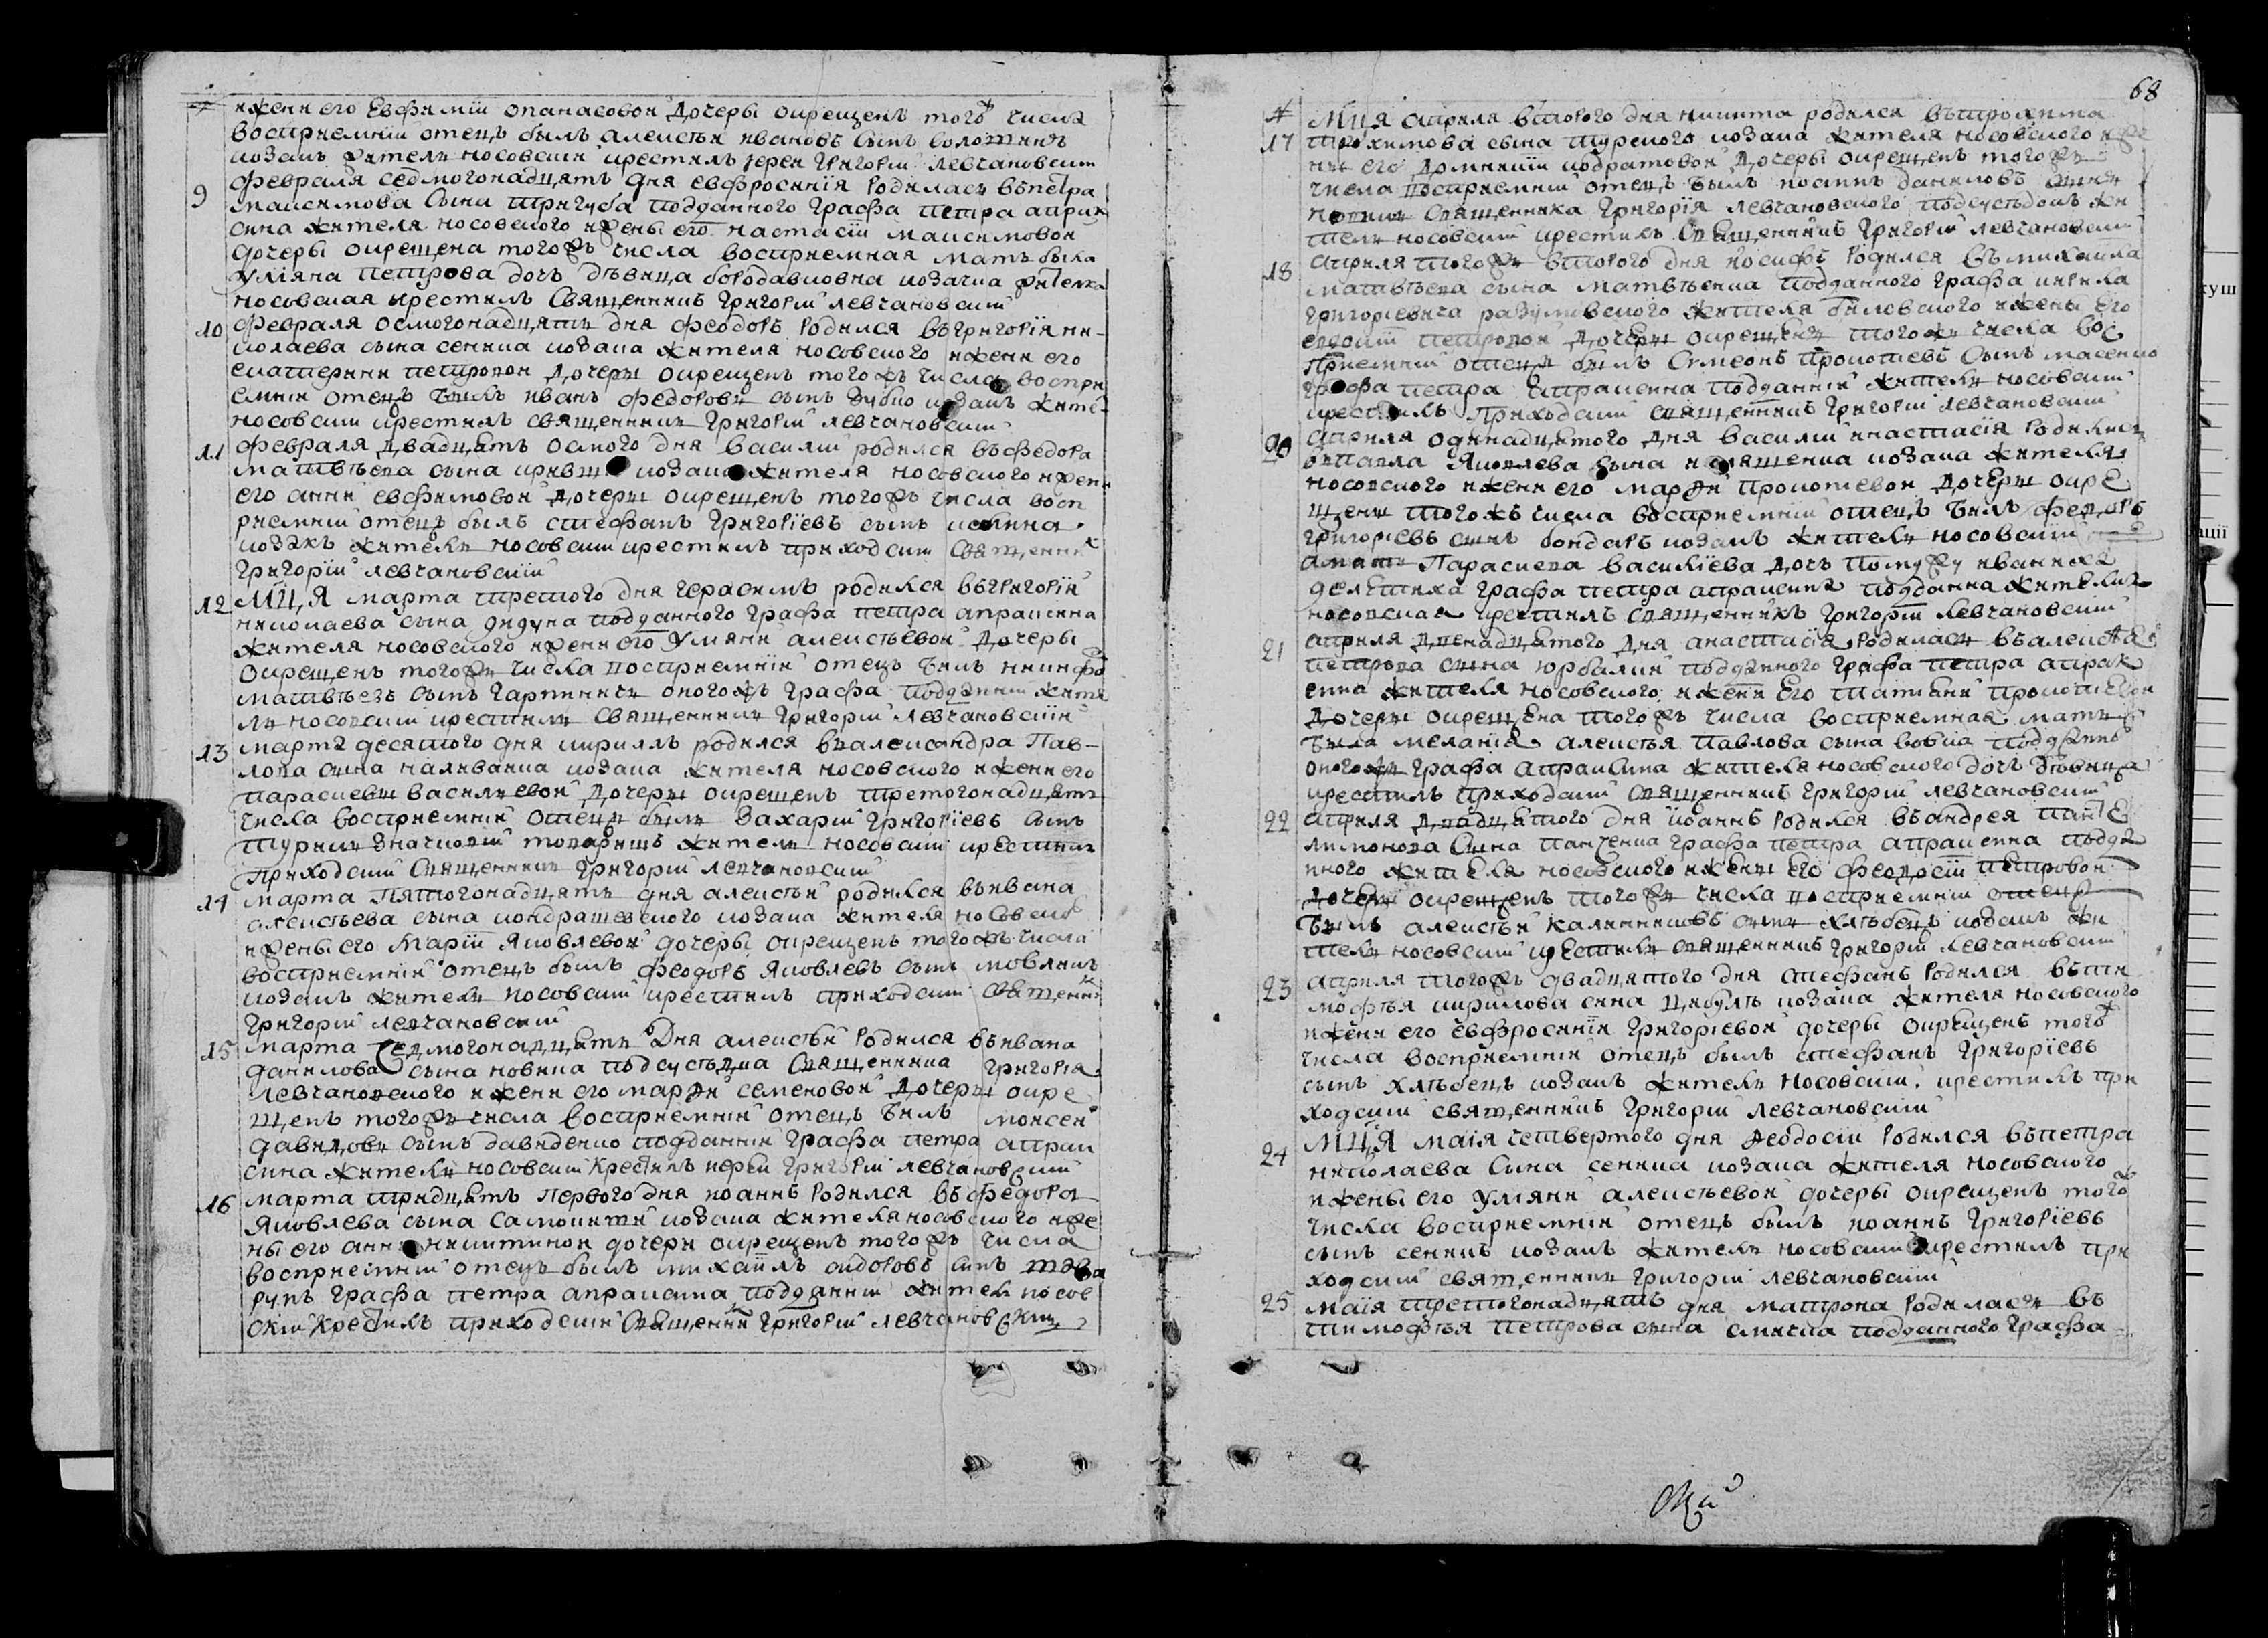 68
ижени его Евфимїи опанасовой дочеры окрещенъ того ж числа
восприемнїй отецъ былъ алексѣй ивановъ сынъ
козакъ жителъ носовскїй крестилъ іерей григорїй левчановскїй
9 февраля седмогонадцять дня евфросинїя родилася въ петра
максимова сына тригуба подданного графа петра апрак
сина жителя носовского и жены его настасїи максимовой
дочеры окрещена того жъ числа восприемная мать была
Улїяна петрова дочь дѣвица бородавковна козачка жителка
носовская крестилъ священникъ григорїй левчановскїй
10 февраля осмогонадцять дня феодоръ родился въ григорїя ни-
колаева сына сеника козака жителя носовского и жени его
екатерини петровой дочери окрещенъ того жъ числа воспри
емнїй отецъ былъ иванъ федоровъ сынъ дубко козакъ жите-
носовскїй крестилъ священникъ григорїй левчановскїй
11 февраля двадцять осмого дня василїй родился въ федора
матвѣева сына козака жителя носовского и жени
его анни евфимовой дочеры окрещенъ того жъ числа восп
риемнїй отецъ былъ стефанъ григорїевъ сынъ
козакъ жителъ носовскїй крестилъ приходскїй священник
григорїй левчановскїй
12 Мця марта третого дня герасимъ родился въ григорїя
николаева сына дидуна подданного графа петра апраксина
жителя носовского и жени его Улияни алексѣевой дочеры
окрещенъ того жъ числа восприемнїй отецъ былъ никифо
матвѣевъ сынъ оного жъ графа подданнїй жите
лъ носовскїй крестилъ священникъ григорїй левчановскїй
13 марта десятого дня кириллъ родился въ александра Пав-
лова сына наливайка козака жителя носовского и жени его
параскевы василиевой дочеры окрещенъ третогонадцять
числа восприемнїй отецъ былъ Захарїй григорїевъ сынъ
турикъ значковїй товарищъ жителъ носовскїй крестилъ
приходскїй священникъ григорїй левчановскїй
14 марта пятогонадцять дня алексѣй родился въ ивана
алексѣева сына кондрашевского козака жителя носовско
и жены его Марїи Яковлевой дочеры окрещенъ того жъ числа
восприемнїй отецъ былъ феодоръ Яковлевъ сынъ
козакъ жителъ носовскїй крестилъ приходскїй священни
григорїй левчановскїй
15 марта седмогонадцять Дня алексѣй родился въ ивана
данилова сына новика подсусѣдка священника григорїя
левчановского и жени его марѳи семеновой дочеры окре
щенъ того жъ числа восприемнїй отецъ былъ моисей
давидовъ сынъ давиденко подданнїй графа петра апрак
сина жителъ носовскїй крестилъ иерей григорїй левчановскїй
16 марта тридцять первого дня иоаннъ родился въ федора
Яковлева сына самокиши козака жителя носовского и же
ны его анни никитиной дочери окрещенъ того жъ числа
восприемнїй отецъ былъ михаилъ сидоровъ сынъ
графа петра апраксина подданнїй жител носов
скїй крестилъ приходскїй священник григорїй левчановскїй
17 Мця априля второго дня никита родился въ трохима
трохимова сына турского козака жителя носовского и же
ни его домникїи кодратовой дочеры окрещенъ того жъ
числа восприемнїй отецъ былъ иоаннъ даниловъ сынъ
новикъ священника григорїя левчановского подсусѣдокъ жи
телъ носовскїй крестилъ священникъ григорїй левчановскїй
18 априля того жъ второго дня иосифъ родился въ михаила
матвѣева сына матвѣенка подданного графа кирила
григорїевича разумовского жителя и жены его
петровой дочеры окрещенъ того жъ числа вос
приемнїй отецъ былъ Симеонъ прокопиевъ сынъ
графа петра апраксина подданнїй жителъ носовскїй
крестилъ приходскїй священникъ григорїй левчановскїй
20 априля одинадцятого дня василїй и настасїя родились
въ павла Яковлева сына козака жителя
носовского и жени его марѳи прокопиевой дочеры окре
щени того жъ числа восприемнїй отецъ былъ федоръ
григорїевъ сынъ бондаръ козакъ жителъ носовскїй
а мать Параскева василїева дочь по мужу иваниха
графа петра апраксина подданна жителка
носовская крестилъ священникъ григорїй левчановскїй
21 априля двенадцятого дня анастасїя родилася въ алексѣя
петрова сына подданного графа петра апрак
сина жителя носовского и жени его татїяни прокопиевой
дочеры окрещена того жъ числа восприемная мать
была меланїя алексѣя павлова сына вовка подданно
оного жъ графа апраксина жителя носовского дочь дѣвица
крестилъ приходскїй священникъ григорїй левчановскїй
22 априля двадцятого дня иоаннъ родился въ андрея панте
лимонова сына панченка графа петра апраксина подда
нного жителя носовского и жены его феодосїи петровой
дочеры окрещенъ того жъ числа восприемнїй отецъ
былъ алексѣй калинниковъ сынъ хлѣбецъ козакъ жи
телъ носовскїй крестилъ священникъ григорїй левчановскїй
23 априля того жъ двадцятого дня стефанъ родился въ ти
мофѣя кирилова сина цибулѣ козака жителя носовского
и жени его евфросинїи григорїевой дочеры окрещенъ того ж
числа восприемнїй отецъ былъ стефанъ григорїевъ
сынъ хлѣбецъ козакъ жителъ носовскїй крестилъ при
ходскїй священникъ григорїй левчановскїй
24 Мця маїя четвертого дня ѳеодосїй родился въ петра
николаева сина сеника козака жителя носовского
и жены его Улїяни алексѣевой дочеры окрещенъ того ж
числа восприемнїй отецъ былъ иоаннъ григорїевъ
сынъ сеникъ козакъ жителъ носовскїй крестилъ при
ходскїй священникъ григорїй левчановскїй
25 маїя третогонадцять дня матрона родилася въ
тимофѣя петрова сына подданного графа